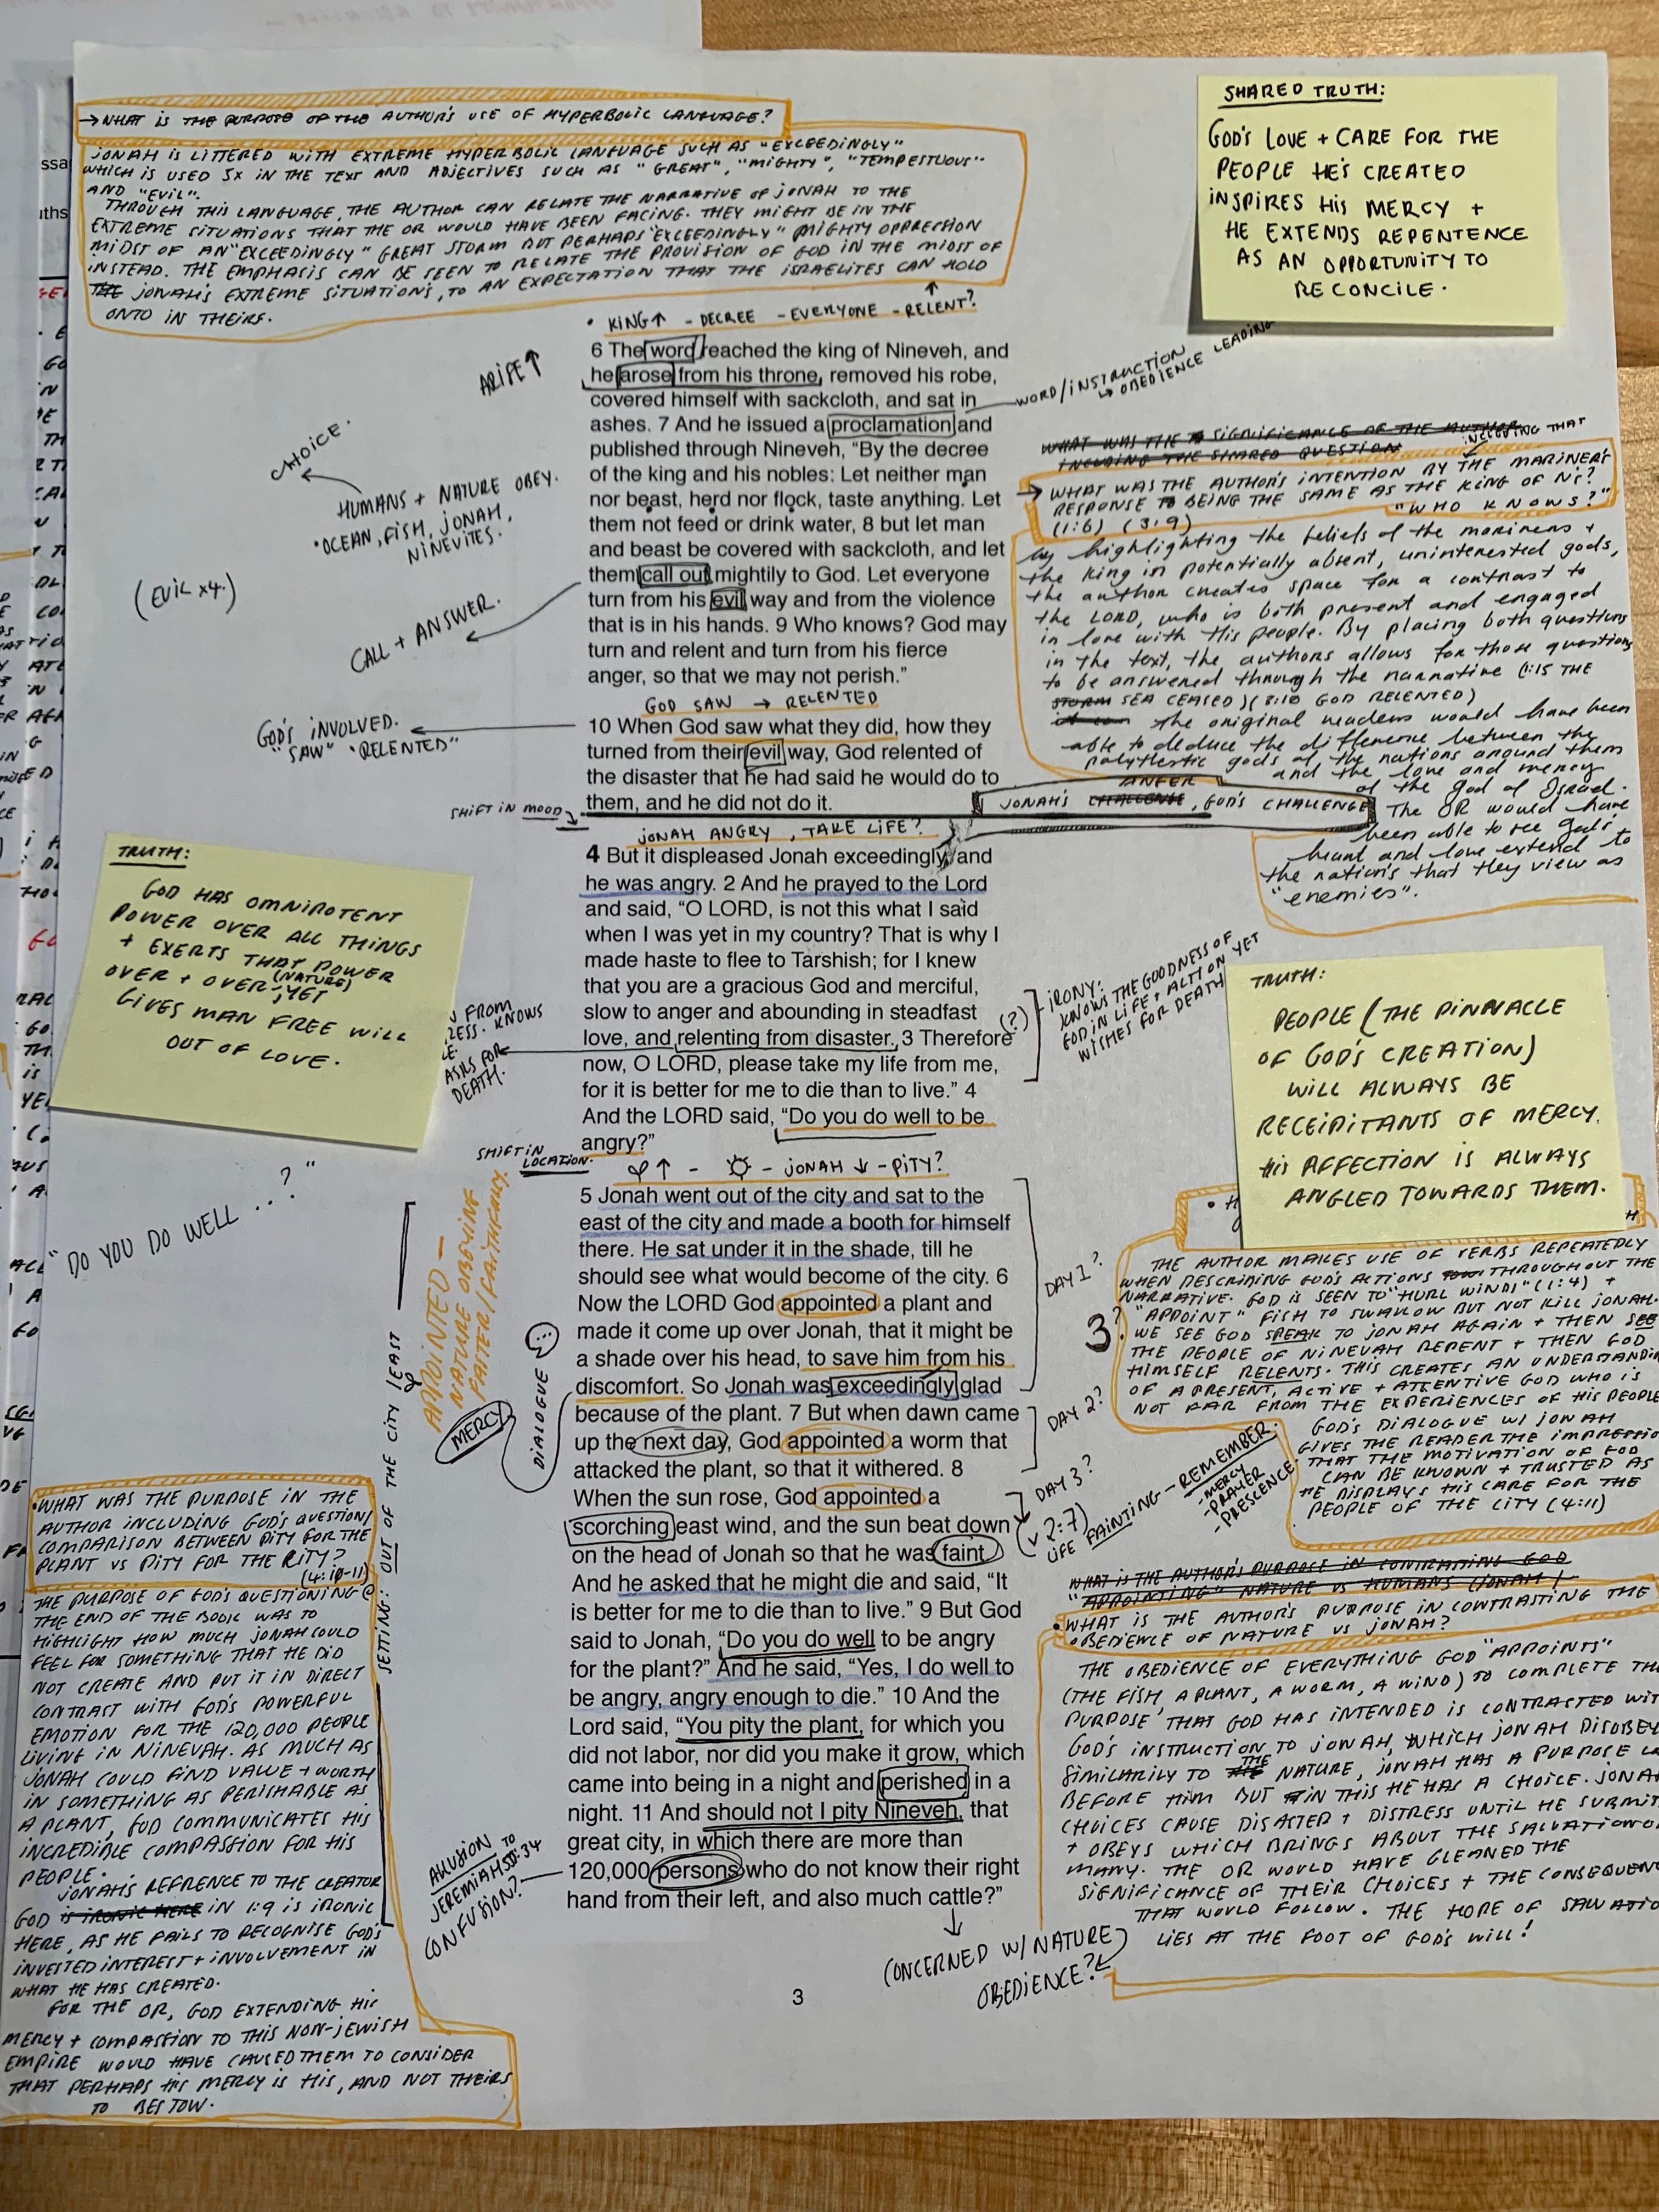 → WHAT IS THE PURPOSE OF THE AUTHOR'S USE OF HYPERBOLIC LANGUAGE?
JONAH IS LITTERED WITH EXTREME HYPERBOLIC LANGUAGE SUCH AS "EXCEEDINGLY"
WHICH IS USED 5X IN THE TEXT AND ADJECTIVES SUCH AS "GREAT", "MIGHTY", "TEMPESTUOUS"
AND "EVIL".
THROUGH THIS LANGUAGE, THE AUTHOR CAN RELATE THE NARRATIVE OF JONAH TO THE
EXTREME SITUATIONS THAT THE OR WOULD HAVE BEEN FACING. THEY MIGHT BE IN THE
MIDST OF AN "EXCEEDINGLY" GREAT STORM BUT PERHAPS "EXCEEDINGLY" MIGHTY OPPRESSION
INSTEAD. THE EMPHASIS CAN BE SEEN TO RELATE THE PROVISION OF GOD IN THE MIDST OF
JONAH'S EXTREME SITUATIONS, TO AN EXPECTATION THAT THE ISRAELITES CAN HOLD
ONTO IN THEIRS.
SHARED TRUTH:
GOD'S LOVE + CARE FOR THE
PEOPLE HE'S CREATED
INSPIRES HIS MERCY +
HE EXTENDS REPENTENCE
AS AN OPPORTUNITY TO
RECONCILE.
• KING↑ - DECREE - EVERYONE - RELENT?
6 The word reached the king of Nineveh, and
he arose from his throne, removed his robe,
covered himself with sackcloth, and sat in
ashes. 7 And he issued a proclamation and
published through Nineveh, “By the decree
of the king and his nobles: Let neither man
nor beast, herd nor flock, taste anything. Let
them not feed or drink water, 8 but let man
and beast be covered with sackcloth, and let
them call out mightily to God. Let everyone
turn from his evil way and from the violence
that is in his hands. 9 Who knows? God may
turn and relent and turn from his fierce
anger, so that we may not perish.”
GOD SAW → RELENTED
10 When God saw what they did, how they
turned from their evil way, God relented of
the disaster that he had said he would do to
them, and he did not do it.
ARISE↑
CHOICE.
HUMANS + NATURE OBEY.
• OCEAN, FISH, JONAH,
NINEVITES.
(EVIL x4.)
CALL + ANSWER.
GOD'S INVOLVED.
"SAW" "RELENTED"
SHIFT IN MOOD
WORD/INSTRUCTION
↳ OBEDIENCE LEADING
WHAT WAS THE SIGNIFICANCE OF THE AUTHOR
INCLUDING THE SHARED QUESTION
INCLUDING THAT
→ WHAT WAS THE AUTHOR'S INTENTION BY THE MARINER'S
RESPONSE TO BEING THE SAME AS THE KING OF N'S?
(1:6) (3:9) "WHO KNOWS?"
by highlighting the beliefs of the mariners +
the king in potentially absent, uninterested gods,
the author creates space for a contrast to
the LORD, who is both present and engaged
in love with His people. By placing both questions
in the text, the authors allows for those questions
to be answered through the narrative (1:15 THE
STORM SEA CEASED) (3:10 GOD RELENTED)
the original readers would have been
able to deduce the difference between the
polytheistic gods of the nations around them
and the love and mercy
of the God of Israel.
The OR would have
been able to see God's
heart and love extend to
the nation's that they view as
"enemies".
ANGER
JONAH'S CHALLENGE, GOD'S CHALLENGE
JONAH ANGRY, TAKE LIFE?
4 But it displeased Jonah exceedingly, and
he was angry. 2 And he prayed to the Lord
and said, “O LORD, is not this what I said
when I was yet in my country? That is why I
made haste to flee to Tarshish; for I knew
that you are a gracious God and merciful,
slow to anger and abounding in steadfast
love, and relenting from disaster. 3 Therefore
now, O LORD, please take my life from me,
for it is better for me to die than to live.” 4
And the LORD said, “Do you do well to be
angry?”
TRUTH:
GOD HAS OMNIPOTENT
POWER OVER ALL THINGS
+ EXERTS THAT POWER
(NATURE)
OVER + OVER; YET
GIVES MAN FREE WILL
OUT OF LOVE.
FROM
KNOWS
ASKS FOR
DEATH.
(?)
IRONY:
KNOWS THE GOODNESS OF
GOD IN LIFE + ACTION YET
WISHES FOR DEATH
TRUTH:
PEOPLE (THE PINNACLE
OF GOD'S CREATION)
WILL ALWAYS BE
RECEIPITANTS OF MERCY.
HIS AFFECTION IS ALWAYS
ANGLED TOWARDS THEM.
SHIFT IN
LOCATION.
↑ - - JONAH ↓ - PITY?
5 Jonah went out of the city and sat to the
east of the city and made a booth for himself
there. He sat under it in the shade, till he
should see what would become of the city. 6
Now the LORD God appointed a plant and
made it come up over Jonah, that it might be
a shade over his head, to save him from his
discomfort. So Jonah was exceedingly glad
because of the plant. 7 But when dawn came
up the next day, God appointed a worm that
attacked the plant, so that it withered. 8
When the sun rose, God appointed a
scorching east wind, and the sun beat down
on the head of Jonah so that he was faint.
And he asked that he might die and said, “It
is better for me to die than to live.” 9 But God
said to Jonah, “Do you do well to be angry
for the plant?” And he said, “Yes, I do well to
be angry, angry enough to die.” 10 And the
Lord said, “You pity the plant, for which you
did not labor, nor did you make it grow, which
came into being in a night and perished in a
night. 11 And should not I pity Nineveh, that
great city, in which there are more than
120,000 persons who do not know their right
hand from their left, and also much cattle?”
"DO YOU DO WELL ...?"
SETTING: OUT OF THE CITY (EAST
APPOINTED —
NATURE OBEYING
MERCY
DIALOGUE
DAY 1?
DAY 2?
DAY 3?
3?
(v 2:7)
LIFE FAINTING - REMEMBER.
- MERCY
- PRAYER
- PRESCENCE
THE AUTHOR MAKES USE OF VERBS REPEATEDLY
WHEN DESCRIBING GOD'S ACTIONS THROUGHOUT THE
NARRATIVE. GOD IS SEEN TO "HURL WINDS" (1:4) +
"APPOINT" FISH TO SWALLOW BUT NOT KILL JONAH.
WE SEE GOD SPEAK TO JONAH AGAIN + THEN SEE
THE PEOPLE OF NINEVAH REPENT + THEN GOD
HIMSELF RELENTS. THIS CREATES AN UNDERSTANDIN
OF A PRESENT, ACTIVE + ATTENTIVE GOD WHO IS
NOT FAR FROM THE EXPERIENCES OF HIS PEOPLE
GOD'S DIALOGUE W/ JONAH
GIVES THE READER THE IMPRESSIO
THAT THE MOTIVATION OF GOD
CAN BE KNOWN + TRUSTED AS
HE DISPLAYS HIS CARE FOR THE
PEOPLE OF THE CITY (4:11)
WHAT IS THE AUTHOR'S PURPOSE IN CONTRASTING GOD
"APPOINTING" NATURE VS HUMANS (JONAH)
• WHAT IS THE AUTHOR'S PURPOSE IN CONTRASTING THE
OBEDIENCE OF NATURE VS JONAH?
THE OBEDIENCE OF EVERYTHING GOD "APPOINTS"
(THE FISH, A PLANT, A WORM, A WIND) TO COMPLETE THE
PURPOSE THAT GOD HAS INTENDED IS CONTRASTED WIT
GOD'S INSTRUCTION TO JONAH, WHICH JONAH DISOBEY
SIMILARILY TO THE NATURE, JONAH HAS A PURPOSE LA
BEFORE HIM BUT IN THIS HE HAS A CHOICE. JONAH
CHOICES CAUSE DISASTER + DISTRESS UNTIL HE SUBMIT
+ OBEYS WHICH BRINGS ABOUT THE SALVATION O
MANY. THE OR WOULD HAVE GLEANED THE
SIGNIFICANCE OF THEIR CHOICES + THE CONSEQUEN
THAT WOULD FOLLOW. THE HOPE OF SALVATIO
LIES AT THE FOOT OF GOD'S WILL!
• WHAT WAS THE PURPOSE IN THE
AUTHOR INCLUDING GOD'S QUESTION/
COMPARISON BETWEEN PITY FOR THE
PLANT VS PITY FOR THE CITY?
(4:10-11)
THE PURPOSE OF GOD'S QUESTIONING @
THE END OF THE BOOK WAS TO
HIGHLIGHT HOW MUCH JONAH COULD
FEEL FOR SOMETHING THAT HE DID
NOT CREATE AND PUT IT IN DIRECT
CONTRAST WITH GOD'S POWERFUL
EMOTION FOR THE 120,000 PEOPLE
LIVING IN NINEVAH. AS MUCH AS
JONAH COULD FIND VALUE + WORTH
IN SOMETHING AS PERISHABLE AS
A PLANT, GOD COMMUNICATES HIS
INCREDIBLE COMPASSION FOR HIS
PEOPLE.
JONAH'S REFRENCE TO THE CREATOR
GOD IS IRONIC HERE IN 1:9 IS IRONIC
HERE, AS HE FAILS TO RECOGNISE GOD'S
INVESTED INTEREST + INVOLVEMENT IN
WHAT HE HAS CREATED.
FOR THE OR, GOD EXTENDING HIS
MERCY + COMPASSION TO THIS NON-JEWISH
EMPIRE WOULD HAVE CAUSED THEM TO CONSIDER
THAT PERHAPS HIS MERCY IS HIS, AND NOT THEIRS
TO BESTOW.
ALLUSION TO
JEREMIAH 50:34
CONFUSION?
CONCERNED W/ NATURE
OBEDIENCE?
3